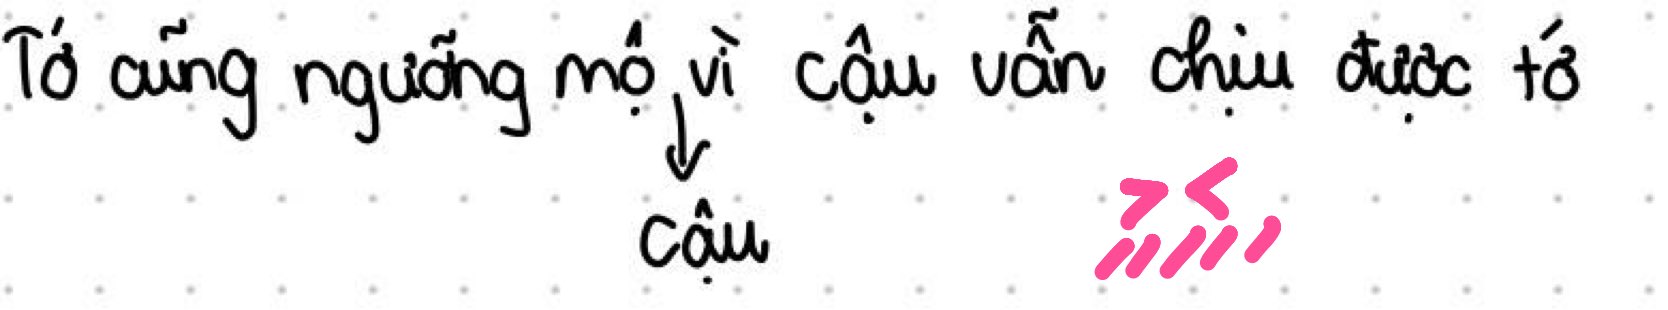 Tớ cũng ngưỡng mộ vì cậu vẫn chịu được tớ
cậu